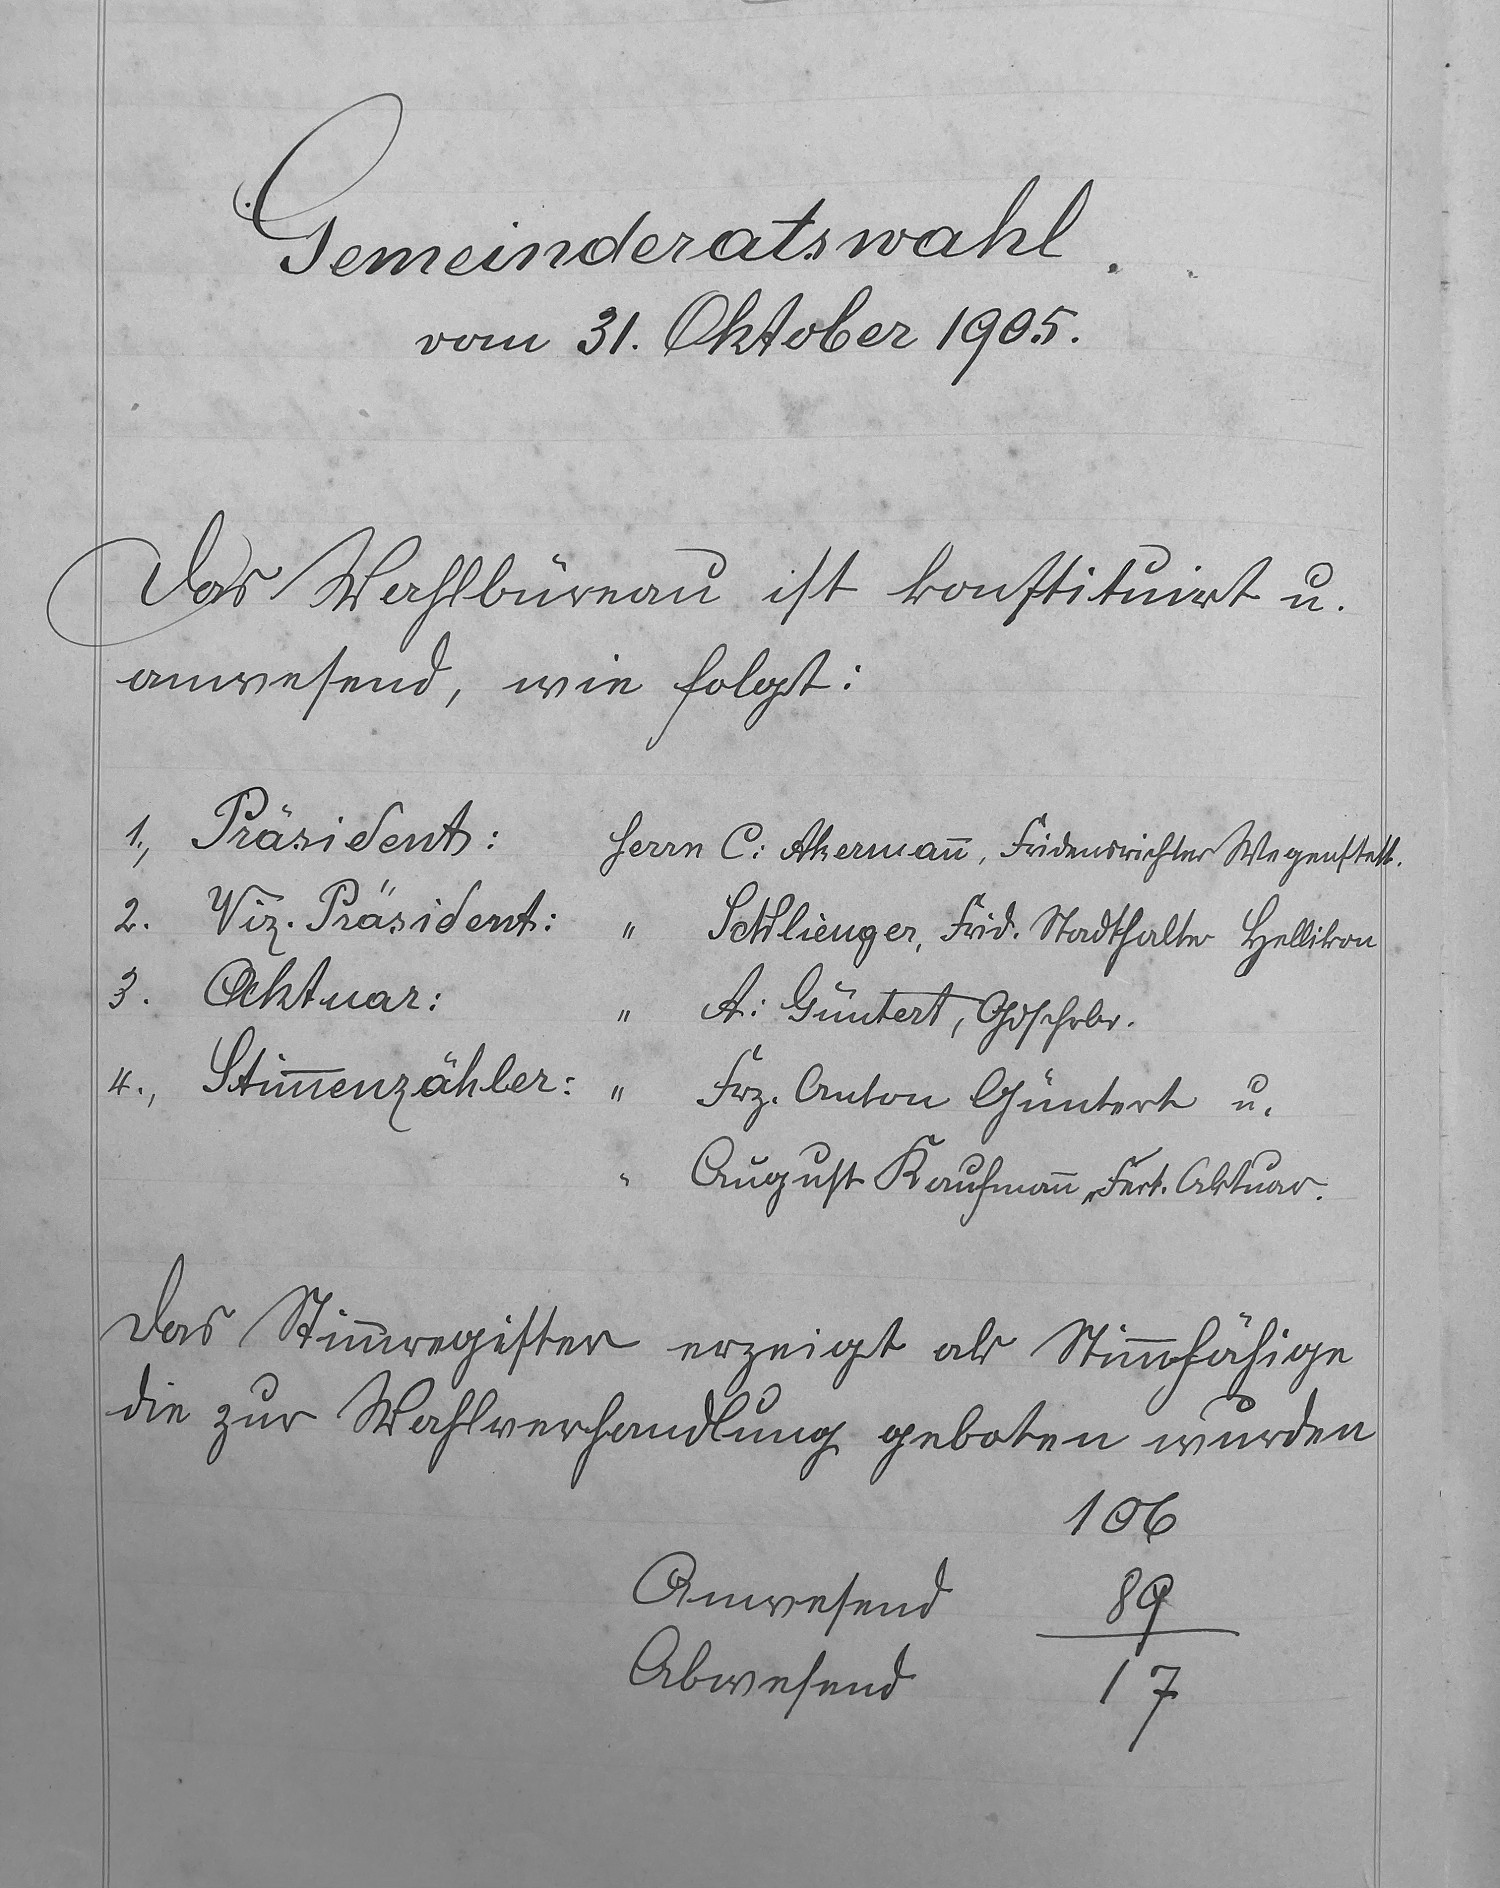 Gemeinderatswahl.
vom 31. Oktober 1905.
Das Wahlbüreau ist konstituirt u.
anwesend, wie folgt:
1., Präsident: Herrn C: Akermañ, Fridensrichter Wegenstett.
2. Viz. Präsident: " Schlienger, Frid. Stadthalter Hellikon
3. Aktuar: " A: Güntert, Gdschrbr.
4., Stim̅enzähler: " Frz. Anton Güntert u.
" August Kaufmañ, Fert. Aktuar.
Das Stim̅register erzeigt als Stim̅fähige
die zur Wahlverhandlung geboten wurden
106
Anwesend 89
Abwesend 17